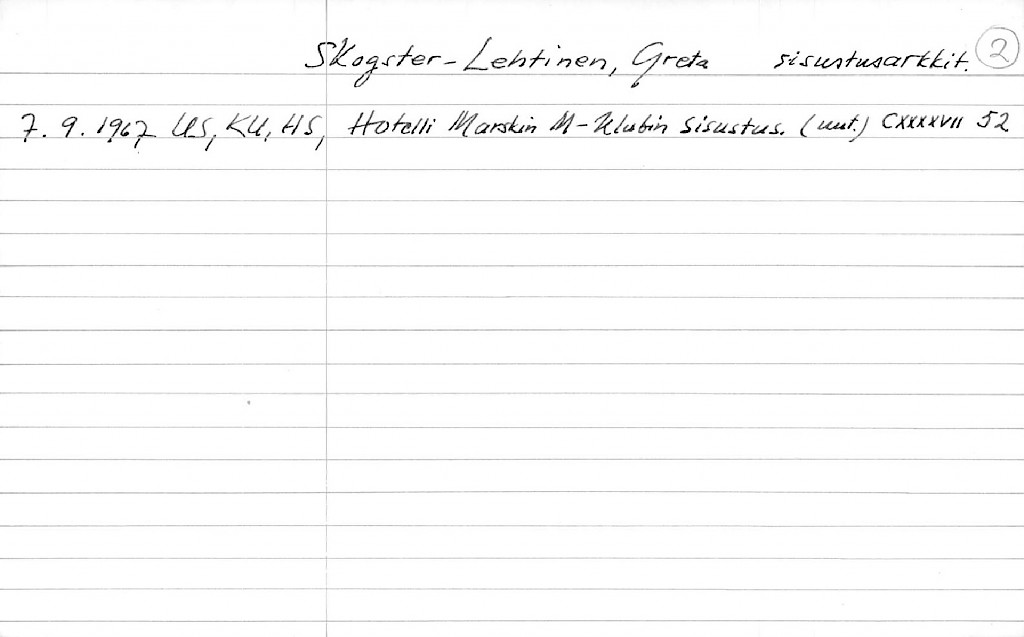 Skogster-Lehtinen, Greta sisustusarkkit. 2
7. 9. 1967 US, KU, HS, Hotelli Marskin M-Klubin sisustus. (uut.) CXXXXVII 52